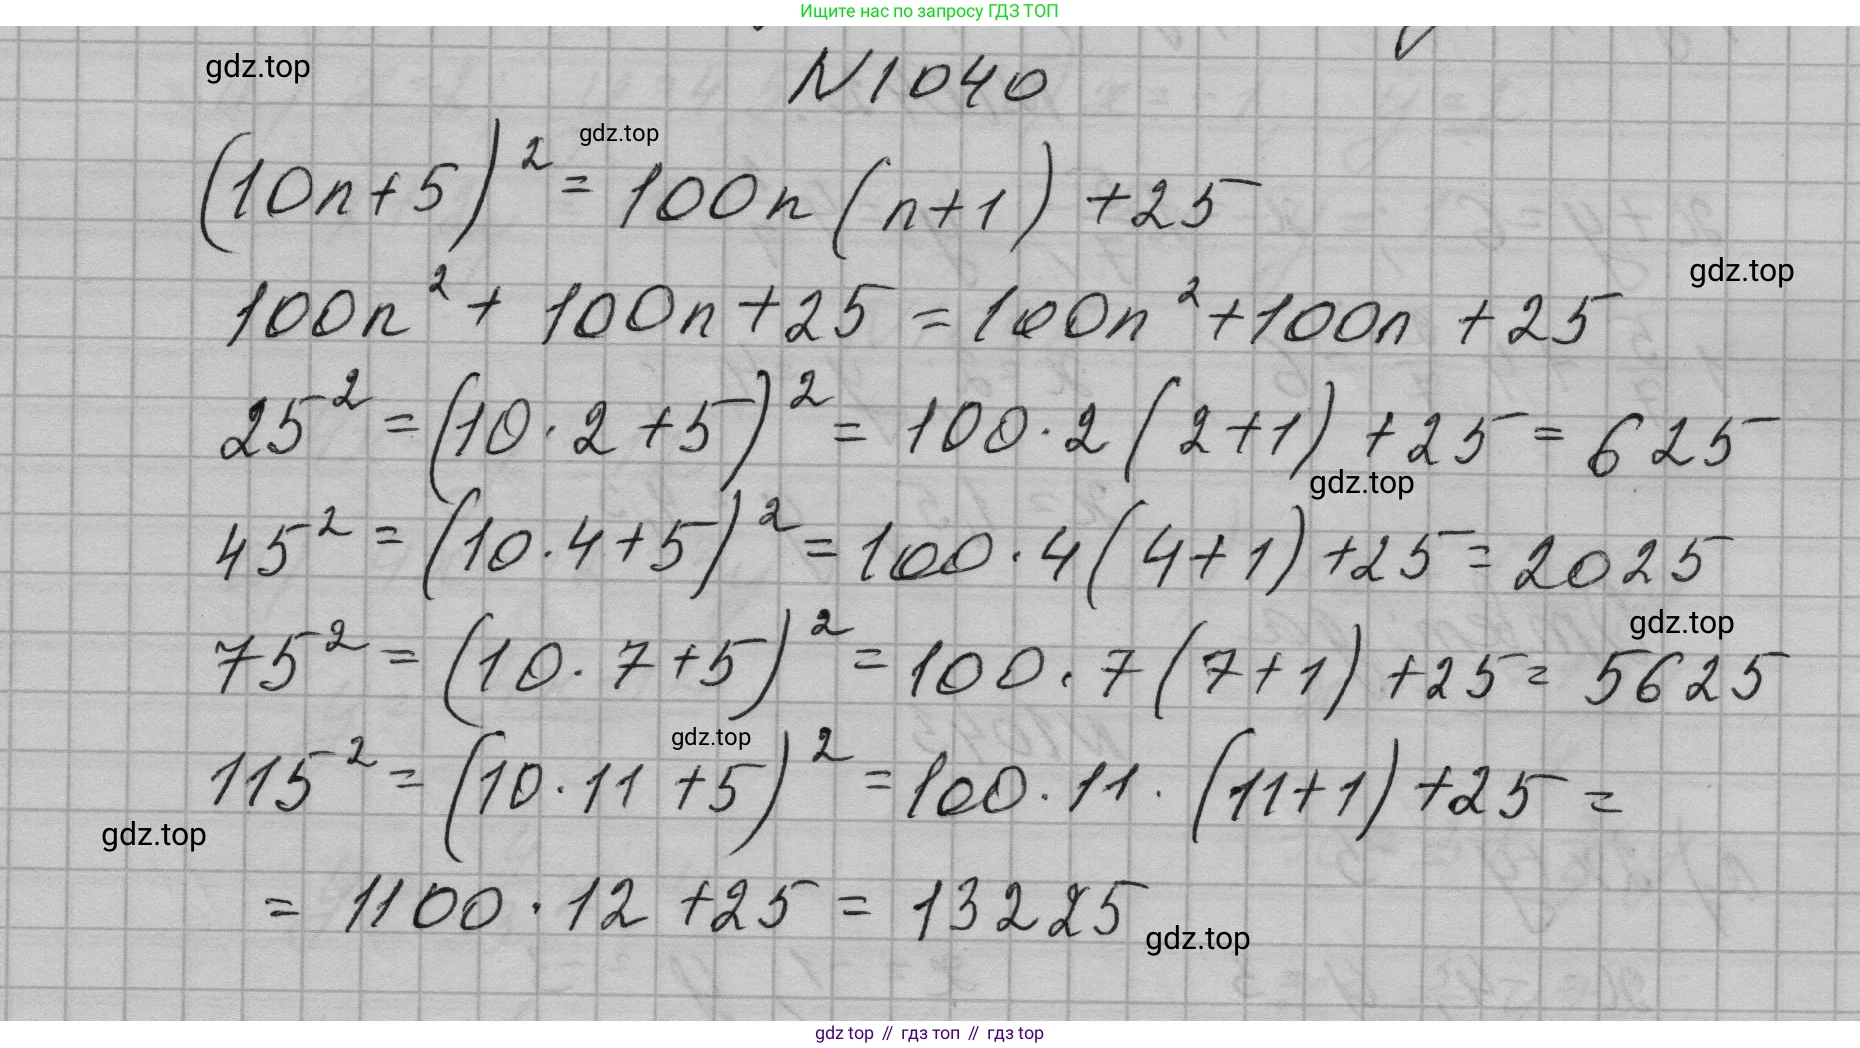 Ищите нас по запросу ГДЗ ТОП
gdz.top
N1040
gdz.top
(10n+5)² = 100n(n+1) +25
gdz.top
100n² + 100n+25 = 100n²+100n +25
25² = (10·2+5)² = 100·2(2+1) +25 = 625
gdz.top
45² = (10·4+5)² = 100·4(4+1) +25 = 2025
gdz.top
75² = (10·7+5)² = 100·7(7+1) +25 = 5625
gdz.top
115² = (10·11+5)² = 100·11·(11+1) +25 =
gdz.top
= 1100·12 +25 = 13225
gdz.top
gdz top // гдз топ // гдз top